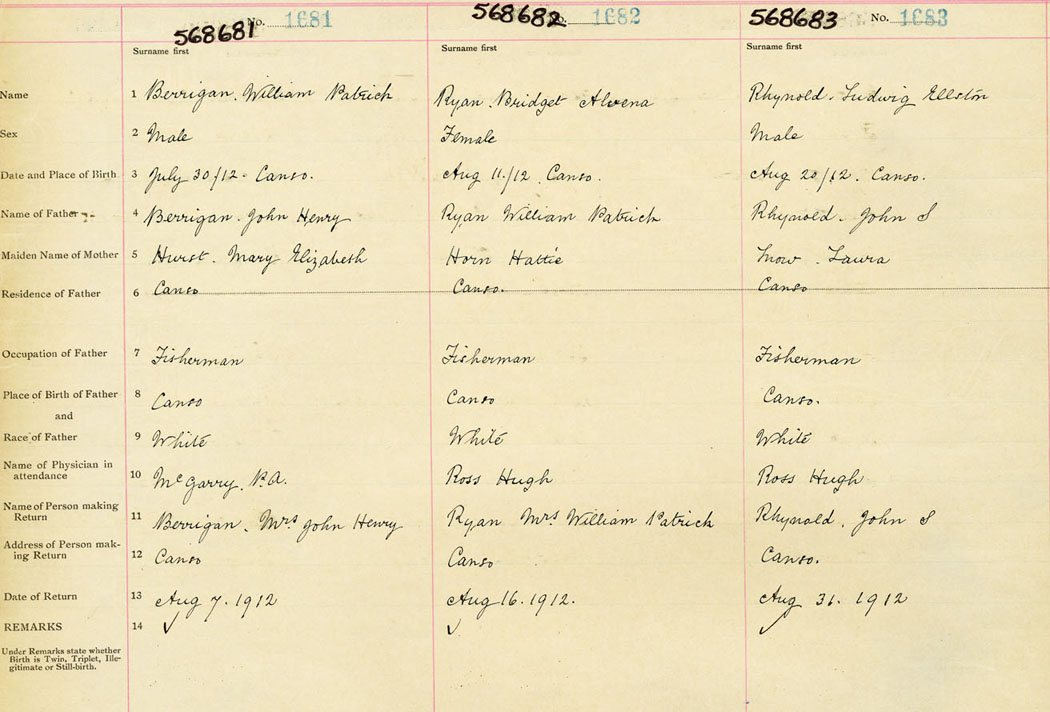 568681 No. 1681 568682 No. 1682 568683 No. 1683
Surname first Surname first Surname first
Name 1 Berrigan. William Patrick Ryan. Bridget Alvena Rhynold. Ludwig Ellston
Sex 2 Male Female Male
Date and Place of Birth 3 July 30/12 - Canso. Aug 11/12. Canso. Aug 20/12. Canso.
Name of Father 4 Berrigan. John Henry Ryan William Patrick Rhynold. John S
Maiden Name of Mother 5 Hurst. Mary Elizabeth Horn Hattie Snow. Laura
Residence of Father 6 Canso Canso. Canso
Occupation of Father 7 Fisherman Fisherman Fisherman
Place of Birth of Father 8 Canso Canso Canso.
and
Race of Father 9 White White White
Name of Physician in
attendance 10 McGarry, P.A. Ross Hugh Ross Hugh
Name of Person making
Return 11 Berrigan. Mrs John Henry Ryan Mrs William Patrick Rhynold. John S
Address of Person mak-
ing Return 12 Canso Canso Canso.
Date of Return 13 Aug 7. 1912 Aug 16. 1912. Aug 31. 1912
REMARKS 14 ✓ ✓ ✓
Under Remarks state whether
Birth is Twin, Triplet, Ille-
gitimate or Still-birth.